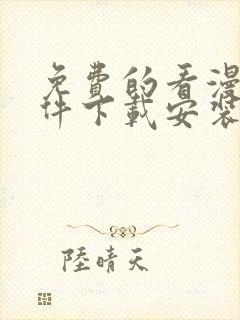 免費的看漫
件下載安裝
陸晴天